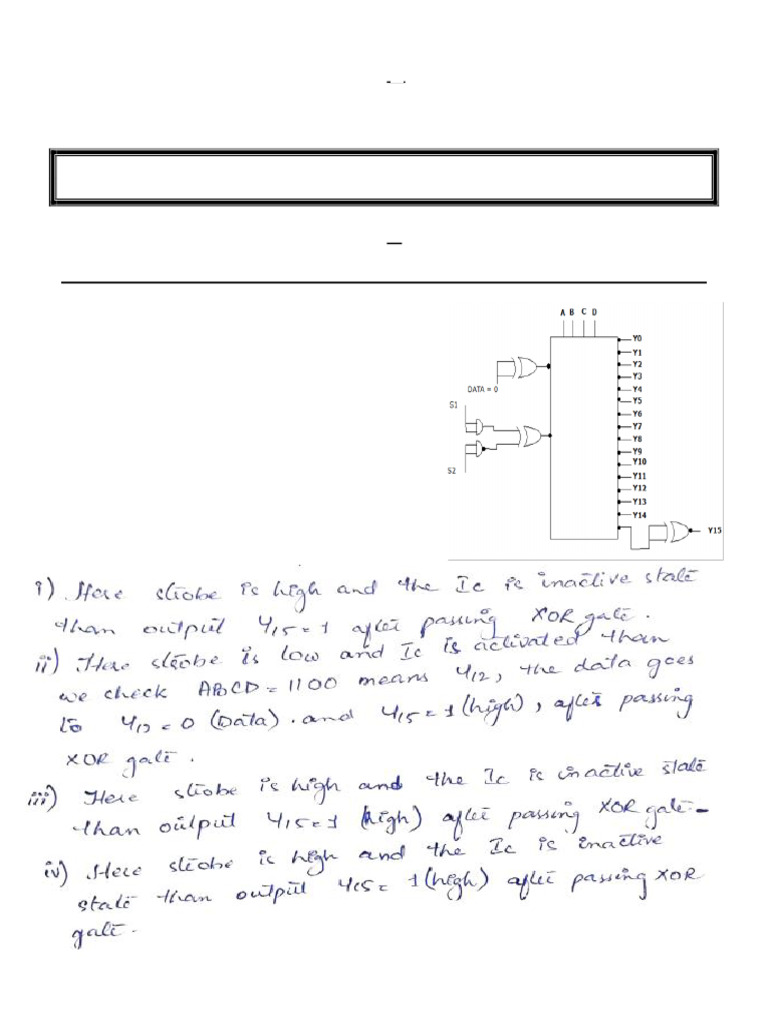 A B C D
Y0
Y1
Y2
Y3
DATA = 0
Y4
Y5
S1
Y6
Y7
Y8
Y9
Y10
S2
Y11
Y12
Y13
Y14
Y15
i) Here strobe is high and the Ic is inactive state
than output Y15=1 after passing XOR gate.
ii) Here strobe is low and Ic is activated than
we check ABCD=1100 means Y12, the data goes
to Y12=0 (Data). and Y15=1(high), after passing
XOR gate.
iii) Here strobe is high and the Ic is inactive state
than output Y15=1 (high) after passing XOR gate-
iv) Here strobe is high and the Ic is inactive
state than output Y15= 1(high) after passing XOR
gate.